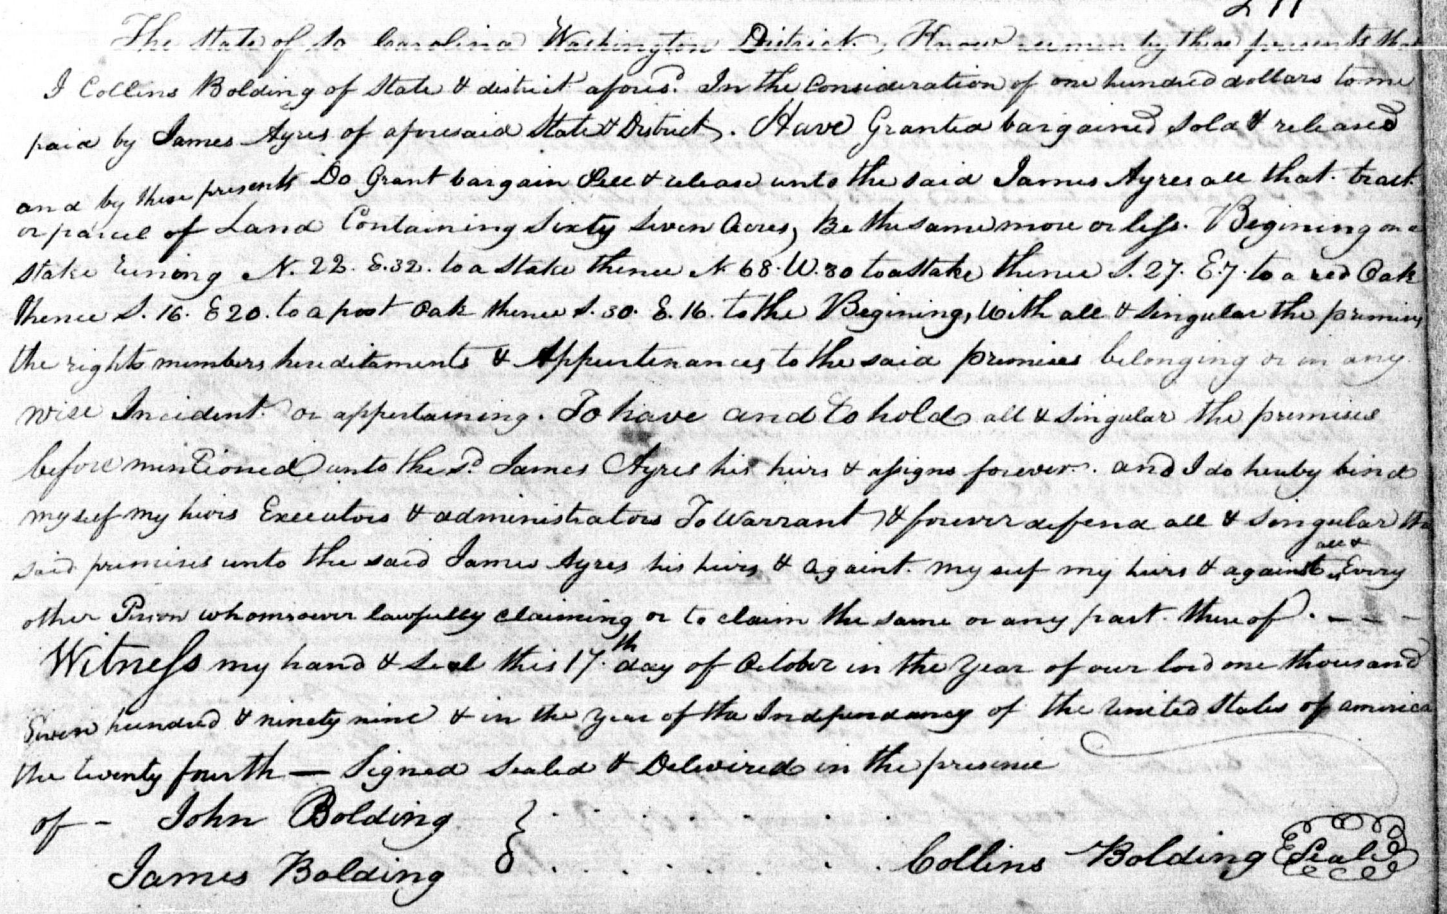 The State of So Carolina Washington District, Know all men by these presents that
I Collins Bolding of State & district afores.d In the Consideration of one hundred dollars to me
paid by James Ayres of aforesaid State & District. Have Granted bargained Sold & released
and by these presents Do Grant bargain Sell & release unto the said James Ayres all that tract
or parcel of Land Containing Sixty Seven Acres, be the same more or less. Begining on a
stake runing N. 22. E. 32. to a Stake thence N 68. W. 30 to a stake thence S. 27. E 7. to a red Oak
thence S. 16. E 20. to a post Oak thence S. 30. E. 16. to the Begining, With all & Singular the premises
the rights members hereditaments & Appurtenances to the said premises belonging or in any
wise Incident or appertaining. To have and to hold all & Singular the premises
before mentioned unto the sd James Ayres his heirs & assigns forever. and I do hereby bind
my self my heirs Executors & administrators To Warrant & forever defend all & Singular the
said premises unto the said James Ayres his heirs & againt my self my heirs & against all & Every
other Person whomsoever lawfully claiming or to claim the same or any part thereof. - - -
Witness my hand & Seal this 17.th day of October in the Year of our lord one thousand
Seven hundred & ninety nine & in the Year of the Independancy of the United States of america
the twenty fourth — Signed Sealed & Delivired in the presence
of - John Bolding
James Bolding
Collins Bolding Seal